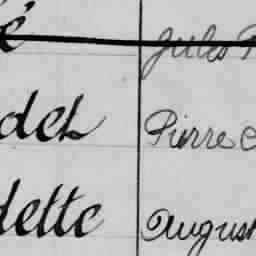 é Jules
det Pierre
dette August